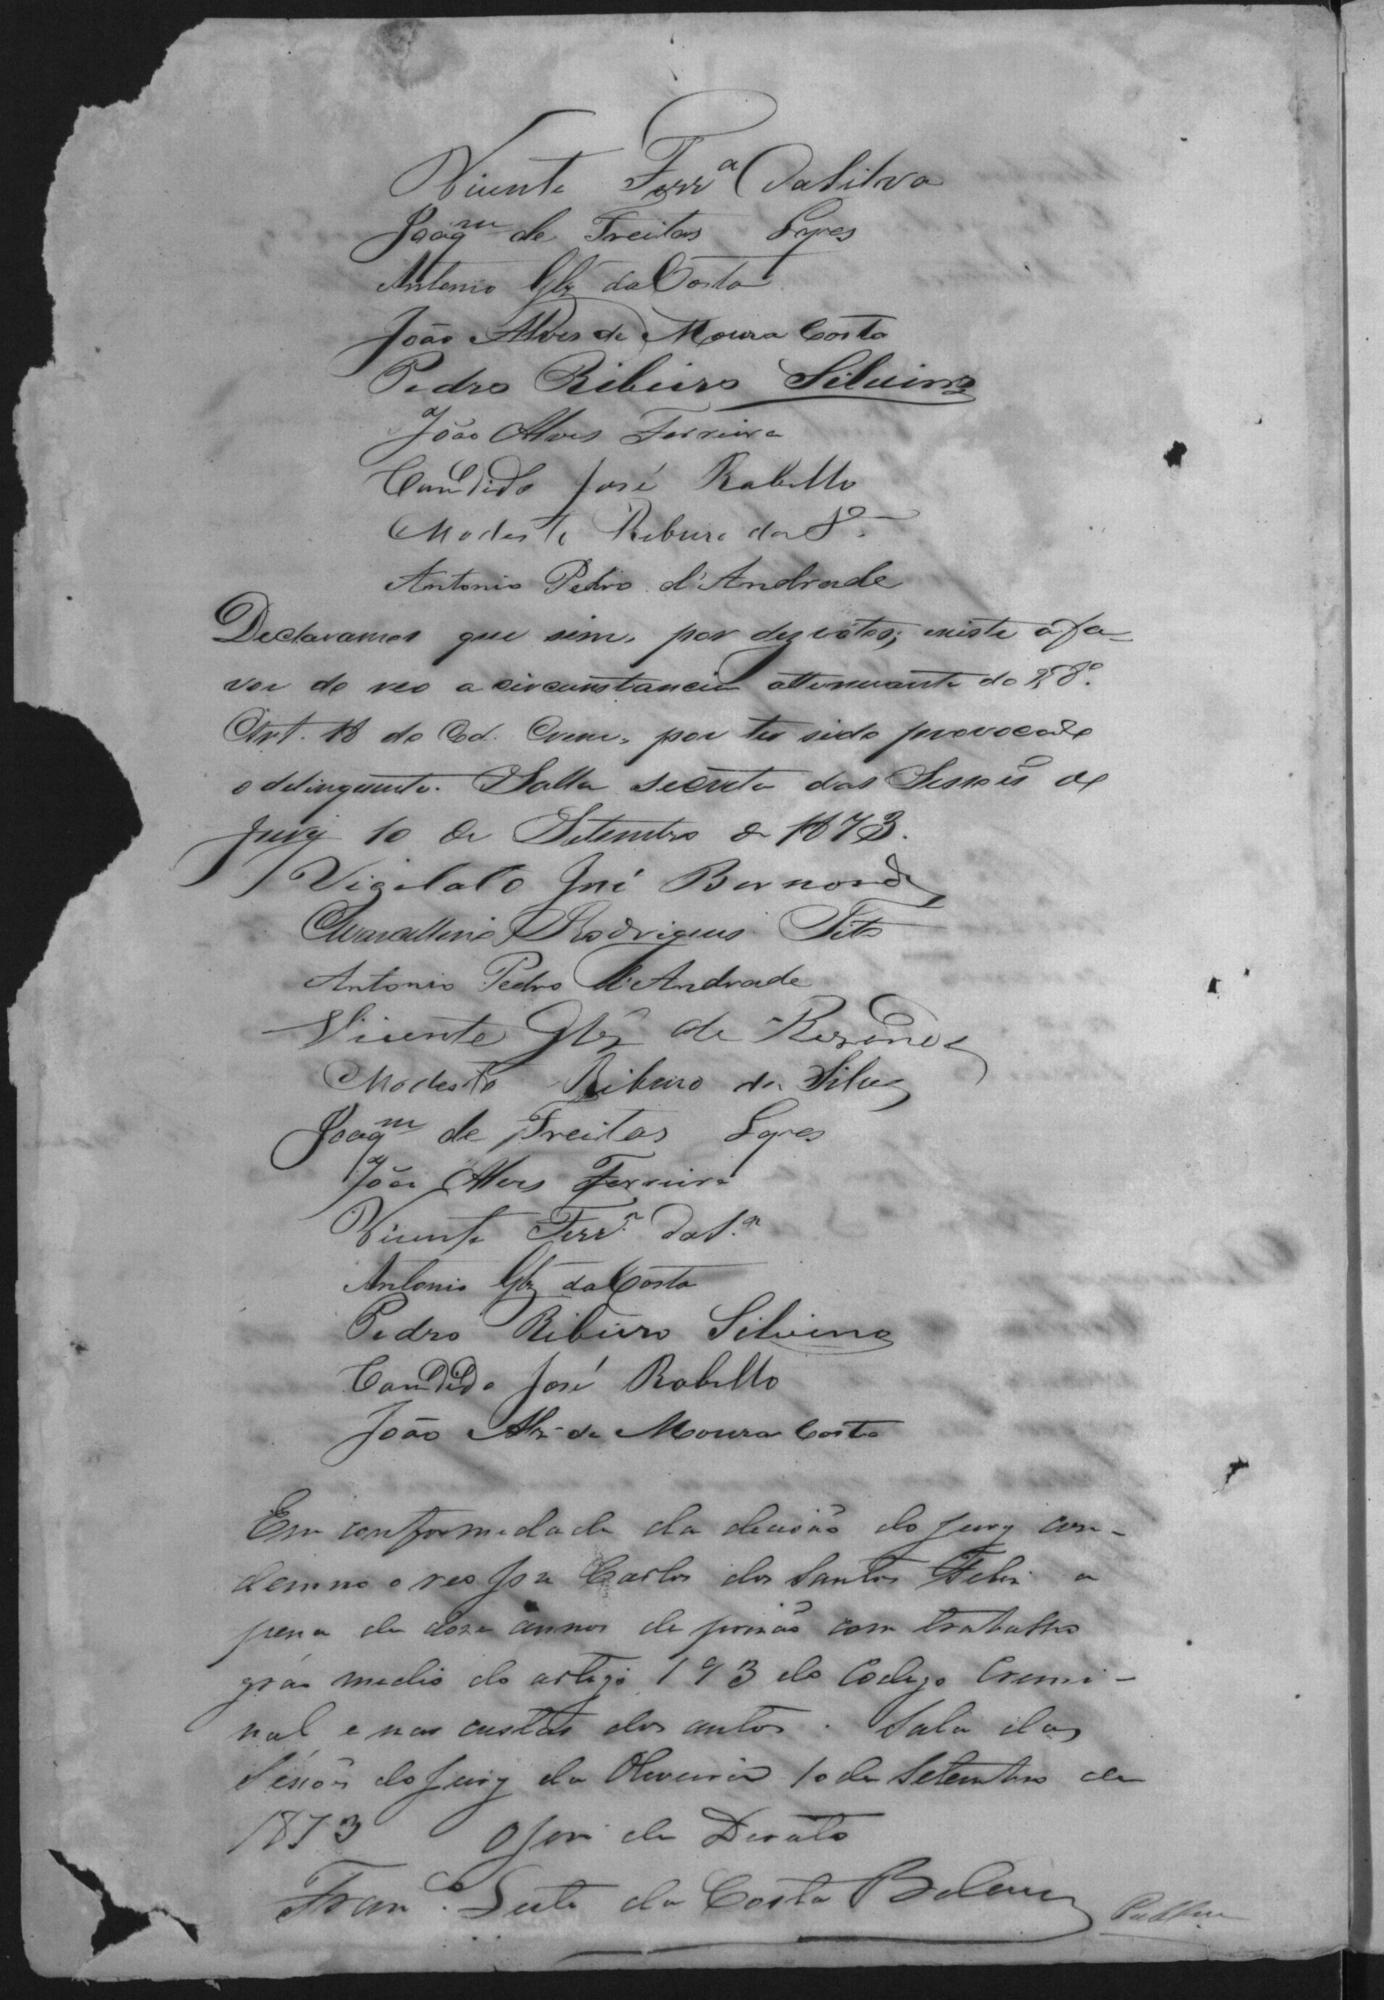 Vicente Ferrª Da Silva
Joaqm de Freitas Lopes
Antonio Glz da Costa
João Alves de Moura Costa
Pedro Ribeiro Silvino
João Alves Ferreira
Candido José Rabello
Modesto Ribeiro da Sª
Antonio Pedro d'Andrade
Declaramos que sim, por dez votos; existe a fa-
vor do reo a circunstancia attenuante do § 8º
Art. 18 do Cod. Crim. por ter sido provocado
o delinquente. Salla secreta das Sessões do
Jury 10 de Setembro de 1873.
Vigilato José Bernardes
Rodrigues Tito
Antonio Pedro d'Andrade
Vicente Glz de Rezende
Modesto Ribeiro da Silva
Joaqm de Freitas Lopes
João Alves Ferreira
Vicente Ferrª da Sª
Antonio Glz da Costa
Pedro Ribeiro Silvino
Candido José Rabello
João Alz de Moura Costa
Em conformidade da decisão do Jury con-
demno o reo José Carlos dos Santos a
pena de doze annos de prisão com trabalho
gráo medio do artigo 193 do Codigo Crimi-
nal e nas custas dos autos. Sala das
Sessões do Jury da Oliveira 10 de Setembro de
1873 O Juiz de Direito
Franco Leite da Costa Belem